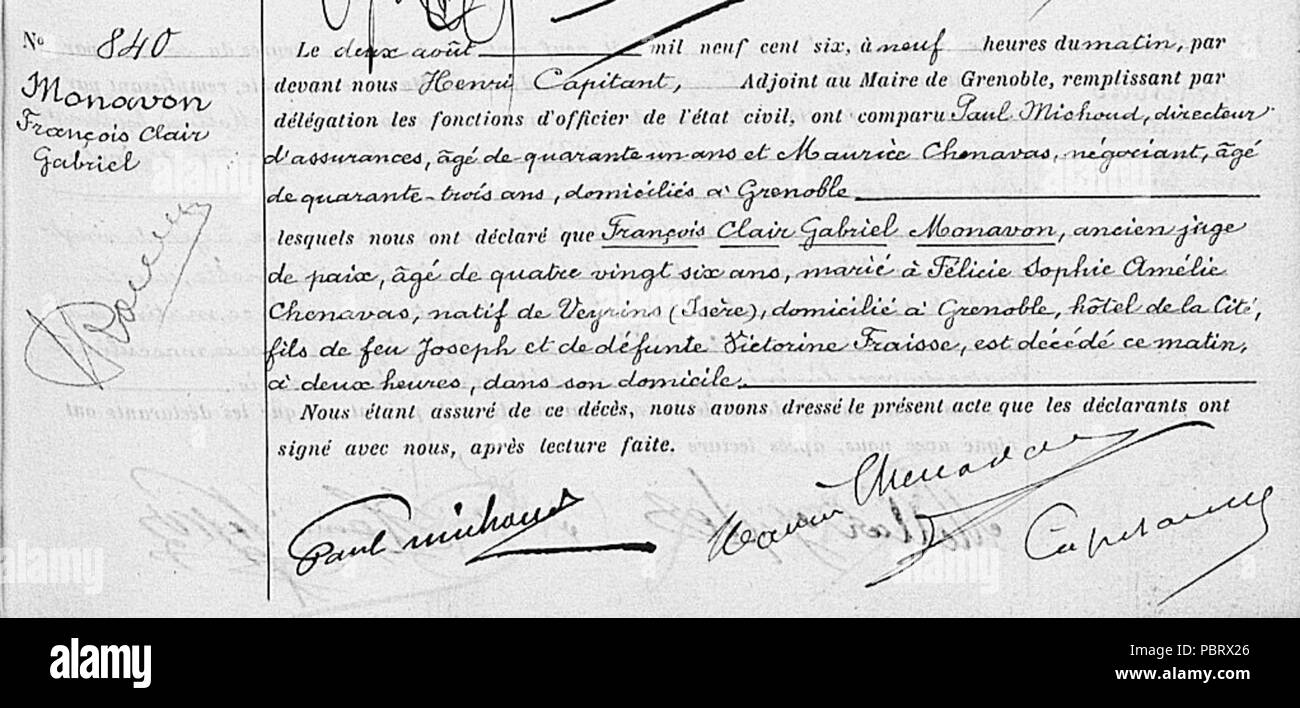 No 840
Monavon
François Clair
Gabriel
Le deux août mil neuf cent six, à neuf heures du matin, par
devant nous Henri Capitant, Adjoint au Maire de Grenoble, remplissant par
délégation les fonctions d'officier de l'état civil, ont comparu Paul Michoud, directeur
d'assurances, âgé de quarante un ans et Maurice Chenavas, négociant, âgé
de quarante-trois ans, domiciliés à Grenoble
lesquels nous ont déclaré que François Clair Gabriel Monavon, ancien juge
de paix, âgé de quatre vingt six ans, marié à Félicie Sophie Amélie
Chenavas, natif de Veyrins (Isère), domicilié à Grenoble, hôtel de la Cité,
fils de feu Joseph et de défunte Victorine Fraisse, est décédé ce matin,
à deux heures, dans son domicile.
Nous étant assuré de ce décès, nous avons dressé le présent acte que les déclarants ont
signé avec nous, après lecture faite.
Paul Michoud
Maurice Chenavas
Capitant
alamy
Image ID: PBRX26
www.alamy.com